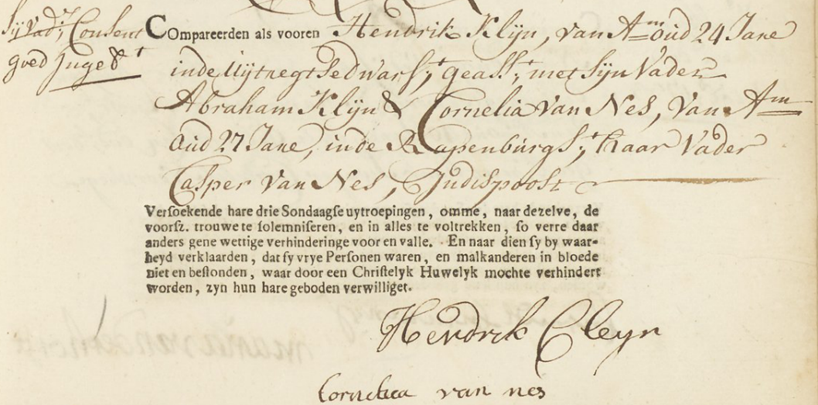 Sÿ Vadr. Consent
goed Ingebt
Compareerden als vooren Hendrik Klijn, van Am oud 24 Jare
inde Uijtregtsedwarst, geasst, met sijn Vader
Abraham Klijn & Cornelia van Nes, van Am
oud 27 Jare, inde Rapenburgst, haar Vader
Casper van Nes, Indispoost
Versoekende hare drie Sondaagse uytroepingen, omme, naar dezelve, de
voorsz. trouwe te solemniseren, en in alles te voltrekken, so verre daar
anders gene wettige verhinderinge voor en valle. En naar dien sy by waar-
heyd verklaarden, dat sy vrye Personen waren, en malkanderen in bloede
niet en bestonden, waar door een Christelyk Huwelyk mochte verhindert
worden, zyn hun hare geboden verwilliget.
Hendrik Cleyn
Cornelica van nes